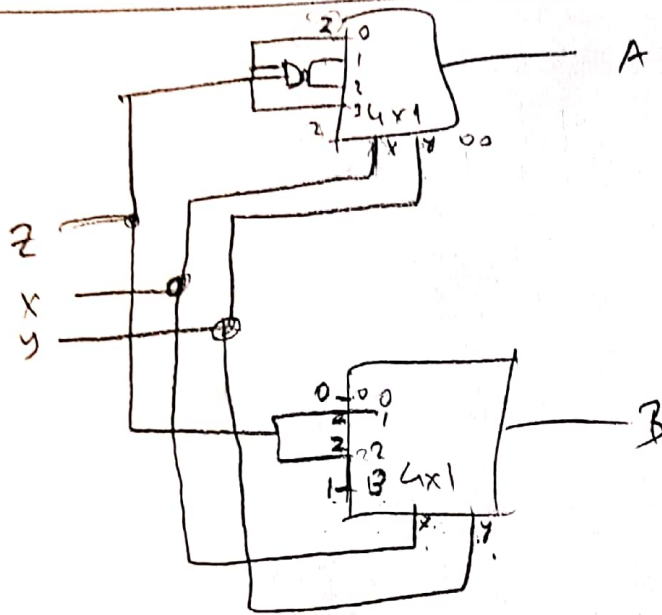 (z) 0
1
2
3 4x1
2 x y 00
A
Z
x
y
0 0 0
z 1
z 2
1 3 4x1
x y
B